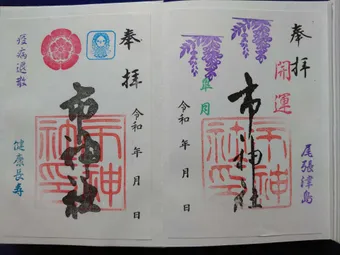 奉拝
開運
皐月
市神社
市神社印
令和 年 月 日
尾張津島
奉拝
疫病退散
市神社
市神社印
令和 年 月 日
健康長寿